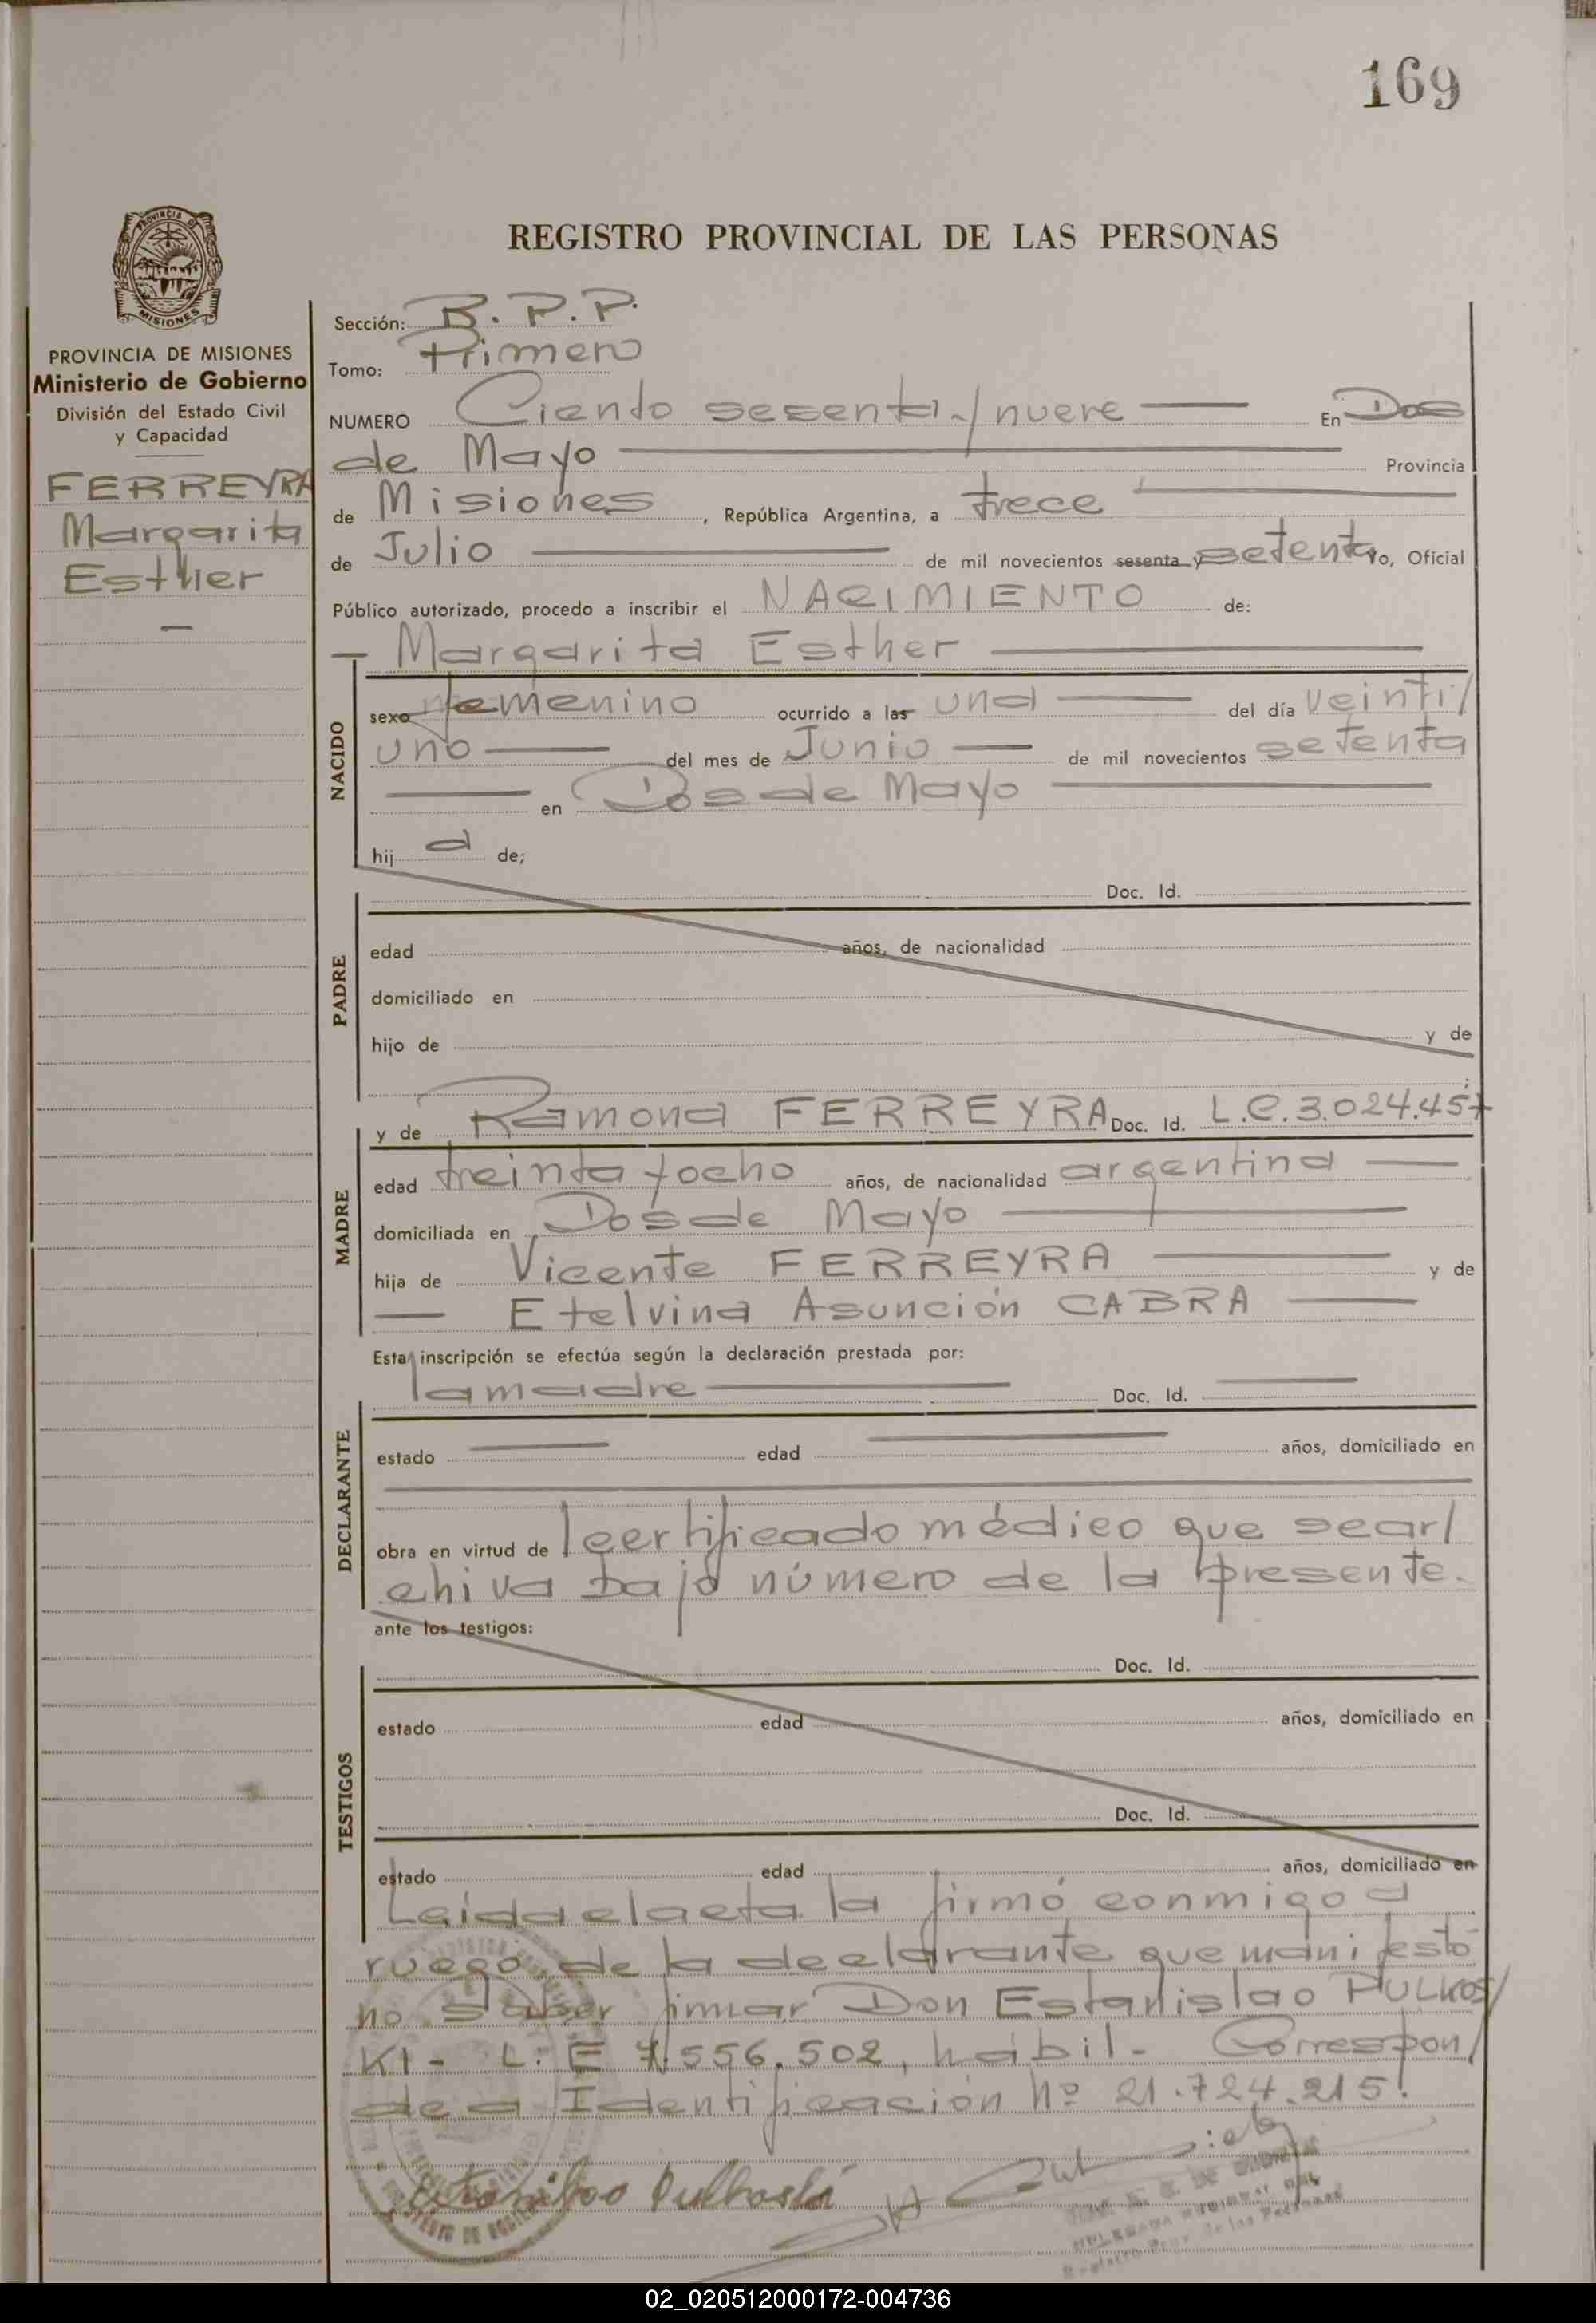 169
PROVINCIA DE MISIONES
Ministerio de Gobierno
División del Estado Civil
y Capacidad
FERREYRA
Margarita
Esther
REGISTRO PROVINCIAL DE LAS PERSONAS
Sección: B.P.P.
Tomo: Primero
NUMERO Ciento sesenta y nueve En Dos
de Mayo Provincia
de Misiones, República Argentina, a trece
de Julio de mil novecientos sesenta y setenta yo, Oficial
Público autorizado, procedo a inscribir el NACIMIENTO de:
Margarita Esther
NACIDO
sexo femenino ocurrido a las una del día veinti/
uno del mes de Junio de mil novecientos setenta
en Dos de Mayo
hij a de;
PADRE
Doc. Id.
edad años, de nacionalidad
domiciliado en
hijo de y de
MADRE
y de Ramona FERREYRA Doc. Id. L.C.3.024.457
edad treinta y ocho años, de nacionalidad argentina
domiciliada en Dos de Mayo
hija de Vicente FERREYRA y de
Etelvina Asunción CABRA
Esta inscripción se efectúa según la declaración prestada por:
DECLARANTE
la madre Doc. Id.
estado edad años, domiciliado en
obra en virtud de certificado médico que se ar/
chiva bajo número de la presente.
ante los testigos:
TESTIGOS
Doc. Id.
estado edad años, domiciliado en
Doc. Id.
estado edad años, domiciliado en
Leída el acta la firmó conmigo a
ruego de la declarante que manifestó
no saber firmar Don Estanislao PULKOS/
KI- L.E 7.556.502, hábil- Correspon/
de a Identificación Nº 21.724.215!
02_020512000172-004736